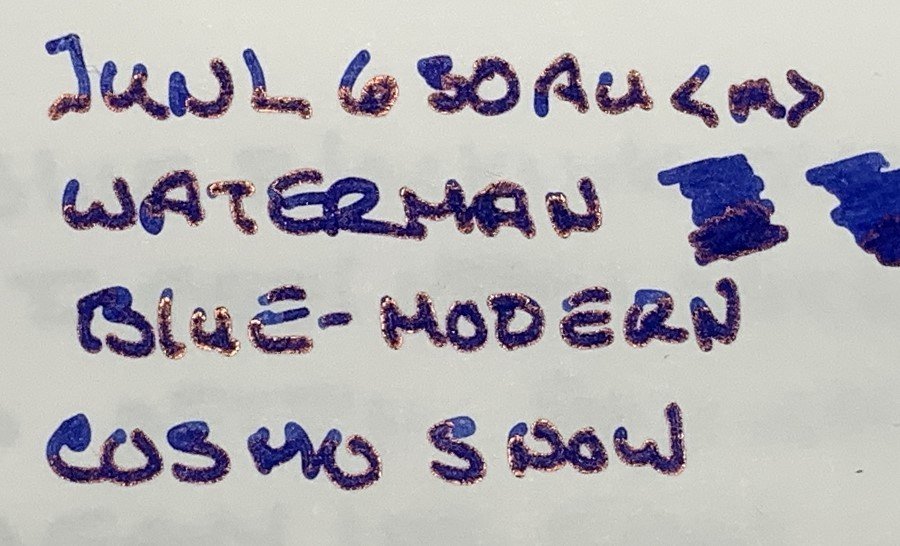 JUNL 630AU <M>
WATERMAN
BLUE-MODERN
COSMO SNOW